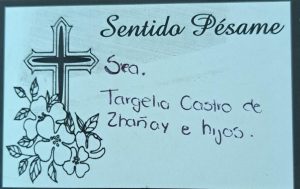 Sentido Pésame
Sra.
Targelia Castro de
Zhañay e hijos.